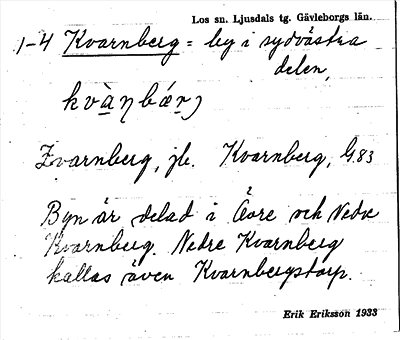 Los sn. Ljusdals tg. Gävleborgs län.
1-4 Kvarnberg = by i sydvästra
delen,
Kvarnberg, jb. Kvarnberg, G.83
Byn är delad i Övre och Nedre
Kvarnberg. Nedre Kvarnberg
kallas även Kvarnbergstorp.
Erik Eriksson 1933